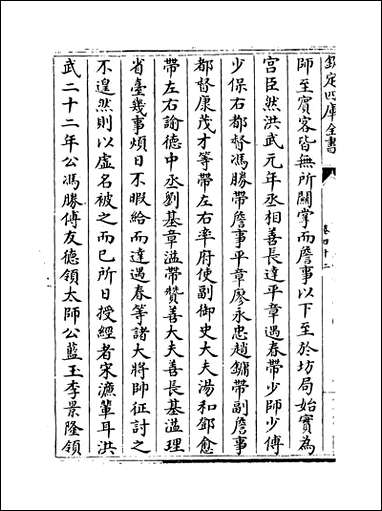 欽定四庫全書
卷四十二
師至賓客皆無所關掌而詹事以下至於坊局始實為
宫臣然洪武元年丞相善長達平章遇春帶少師少傅
少保右都督馮勝帶詹事平章廖永忠趙鏞帶副詹事
都督康茂才等帶左右率府使副御史大夫湯和鄧愈
帶左右諭德中丞劉基章溢帶贊善大夫善長基溢理
省臺幾事煩日不暇給而達遇春等諸大將帥征討之
不遑然則以虛名被之而已所日授經者宋濂輩耳洪
武二十二年公馮勝傅友德領太師公藍玉李景隆領